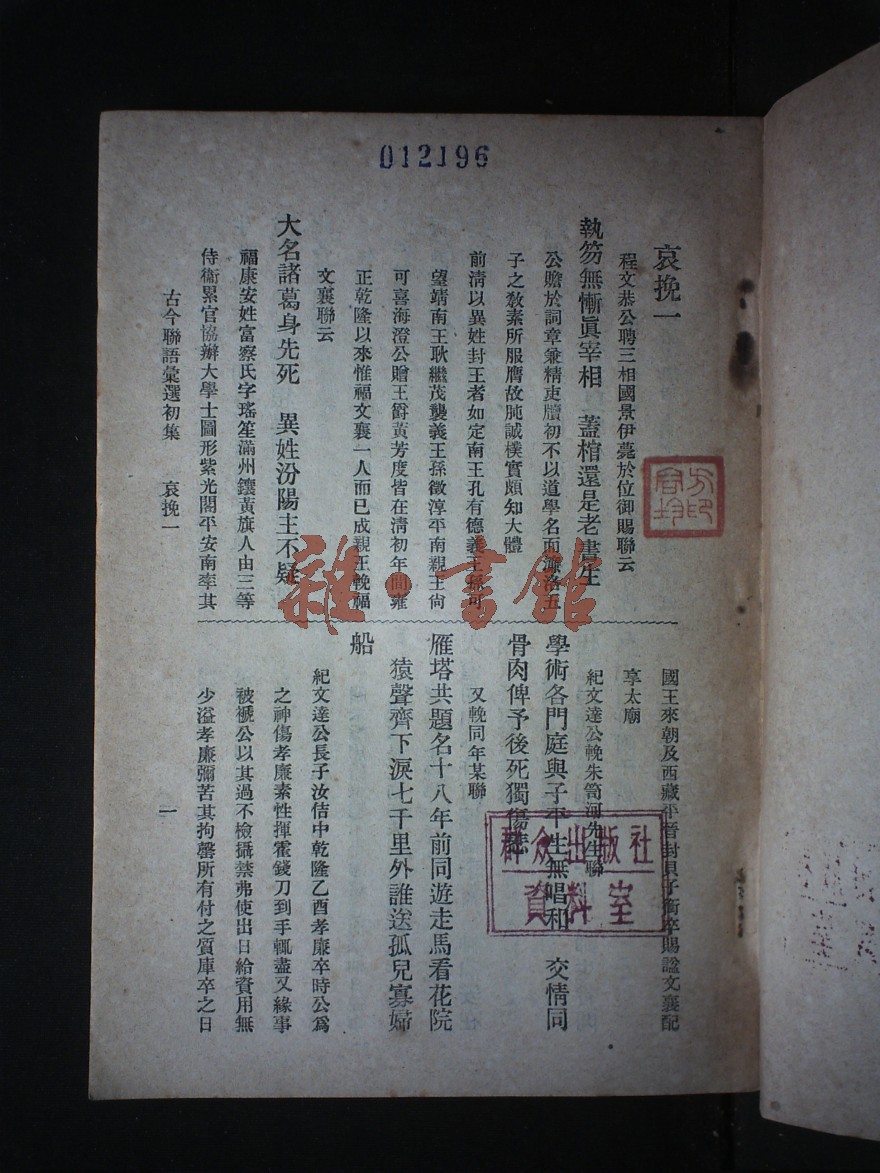 012196
哀挽一
程文恭公聘三相國景伊薨於位御賜聯云
執笏無慚眞宰相　蓋棺還是老書生
公贍於詞章兼精吏牘初不以道學名而濂洛五
子之教素所服膺故肫誠樸實頗知大體
前清以異姓封王者如定南王孔有德義王孫可
望靖南王耿繼茂襲義王孫徵淳平南親王尙
可喜海澄公贈王爵黃芳度皆在淸初年間雍
正乾隆以來惟福文襄一人而已成親王輓福
文襄聯云
大名諸葛身先死　異姓汾陽主不疑
福康安姓富察氏字瑤笙滿州鑲黃旗人由三等
侍衞累官協辦大學士圖形紫光閣平安南率其
國王來朝及西藏平晉封貝子銜卒賜諡文襄配
享太廟
紀文達公輓朱笥河先生聯
學術各門庭與子平生無唱和　交情同
骨肉俾予後死獨傷悲
又輓同年某聯
雁塔共題名十八年前同遊走馬看花院
猿聲齊下淚七千里外誰送孤兒寡婦
船
紀文達公長子汝佶中乾隆乙酉孝廉卒時公爲
之神傷孝廉素性揮霍錢刀到手輒盡又緣事
被褫公以其過不檢攝禁弗使出日給資用無
少溢孝廉彌苦其拘罄所有付之質庫卒之日
古今聯語彙選初集　哀挽一
一
群众出版社
資料室
雜·書館